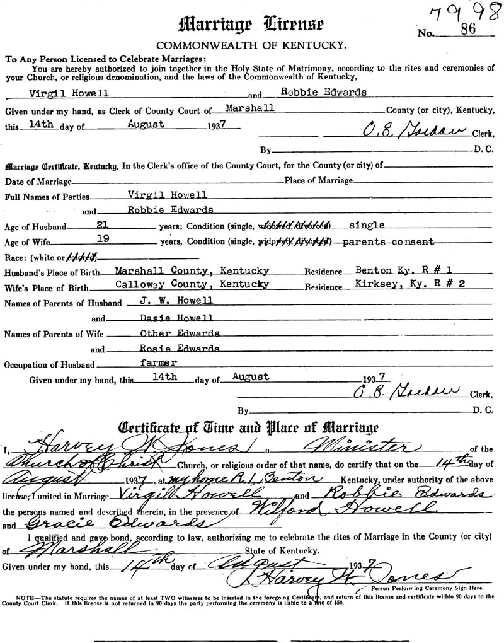 7998
Marriage License
No. 86
COMMONWEALTH OF KENTUCKY.
To Any Person Licensed to Celebrate Marriages:
You are hereby authorized to join together in the Holy State of Matrimony, according to the rites and ceremonies of
your Church, or religious denomination, and the laws of the Commonwealth of Kentucky,
Virgil Howell and Robbie Edwards
Given under my hand, as Clerk of County Court of Marshall County (or city), Kentucky,
this 14th day of August 1937 Clerk,
By D. C.
Marriage Certificate, Kentucky, In the Clerk's office of the County Court, for the County (or city) of
Date of Marriage Place of Marriage
Full Names of Parties Virgil Howell
and Robbie Edwards
Age of Husband 21 years; Condition (single, single
Age of Wife 19 years, Condition (single, parents consent
Race: (white or
Husband's Place of Birth Marshall County, Kentucky Residence Benton Ky. R # 1
Wife's Place of Birth Calloway County, Kentucky Residence Kirksey, Ky. R # 2
Names of Parents of Husband J. W. Howell
and Dasie Howell
Names of Parents of Wife Other Edwards
and Rosie Edwards
Occupation of Husband farmer
Given under my hand, this 14th day of August 1937
Clerk,
By D. C.
Certificate of Time and Place of Marriage
I, Harvey W Jones, Minister of the
Church of Christ Church, or religious order of that name, do certify that on the 14th day of
August 1937, at my home R. 1, Benton Kentucky, under authority of the above
license, I united in Marriage Virgil Howell and Robbie Edwards
the persons named and described therein, in the presence of Wilford Howell
and Gracie Edwards
I qualified and gave bond, according to law, authorizing me to celebrate the rites of Marriage in the County (or city)
of Marshall State of Kentucky.
Given under my hand, this 14th day of August 1937
Harvey W. Jones
Person Performing Ceremony Sign Here.
NOTE—The statute requires the names of at least TWO witnesses to be inserted in the foregoing Certificate, and return of this license and certificate within 90 days to the
County Court Clerk. If this license is not returned in 90 days the party performing the ceremony is liable to a fine of